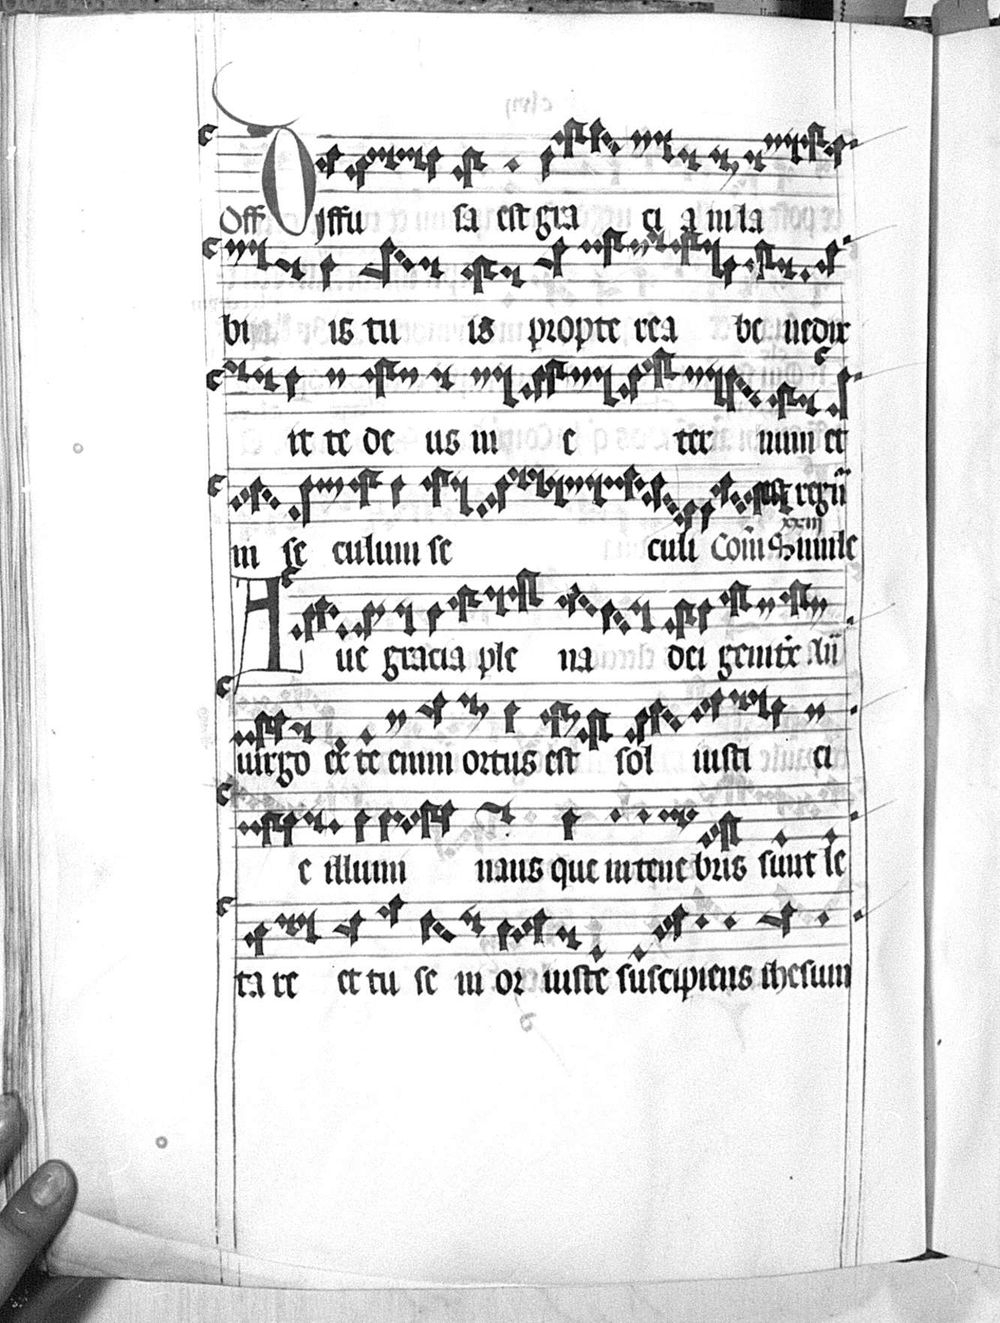 Off Diffu sa est gra ci a in la
bi is tu is propte rea be nedix
it te de us in e ter num et
in se culum se culi Com Simile
Aue gracia ple na dei genitrix
uirgo ex te enim ortus est sol iusti ci
e illumi nans que in tene bris sunt le
ta re et tu se ni or iuste suscipiens ihesum